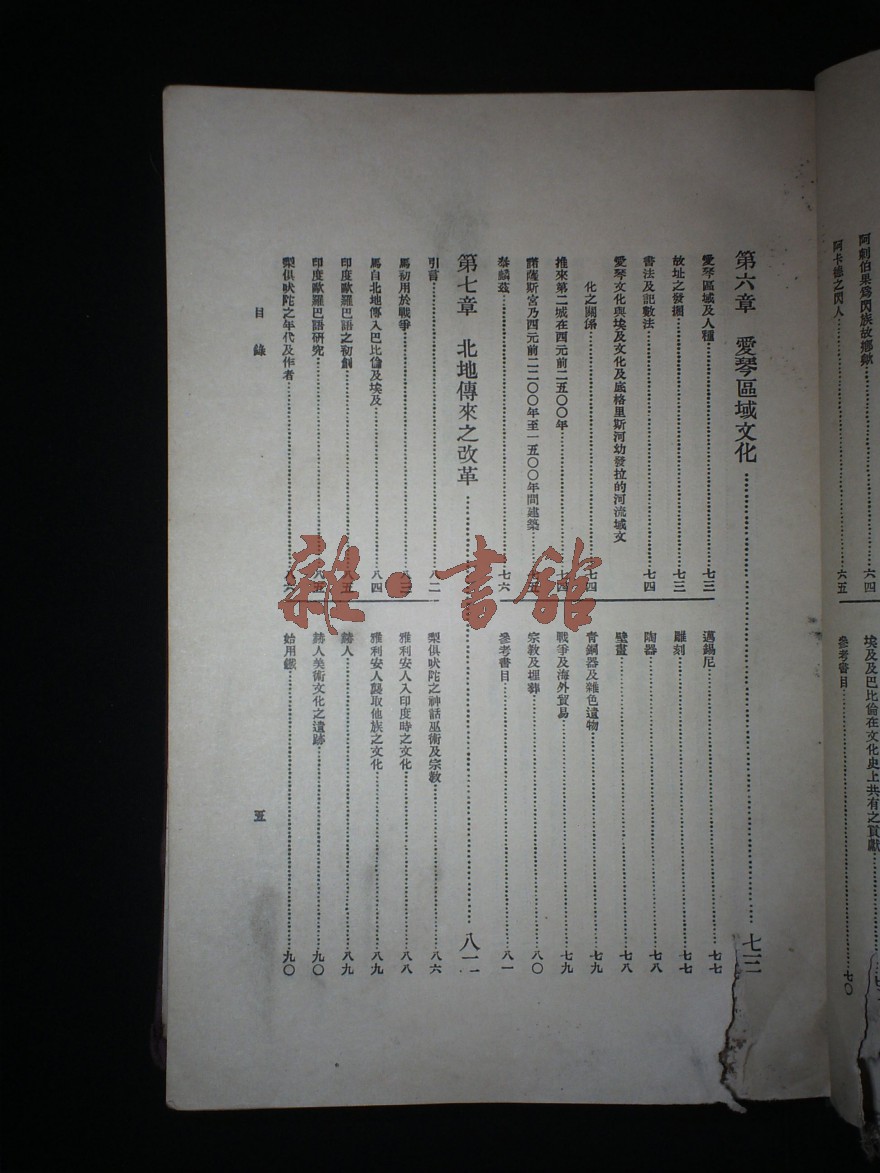 阿剌伯果爲閃族故鄉歟……六四
阿卡德之閃人……六五
埃及及巴比倫在文化史上共有之貢獻……七
參考書目……七〇
第六章　愛琴區域文化……七三
愛琴區域及人種……七三
故址之發掘……七三
書法及記數法……七四
愛琴文化與埃及文化及底格里斯河幼發拉的河流域文
化之關係……七四
推來第二城在西元前二五〇〇年……七四
諾薩斯宮乃西元前二二〇〇年至一五〇〇年間建築……七五
泰鱗茲……七六
邁錫尼……七七
雕刻……七七
陶器……七八
壁畫……七八
青銅器及雜色遺物……七九
戰爭及海外貿易……七九
宗教及埋葬……八〇
參考書目……八一
第七章　北地傳來之改革……八二
引言……八二
馬初用於戰爭……八三
馬自北地傳入巴比倫及埃及……八四
印度歐羅巴語之初創……八五
印度歐羅巴語研究……八五
梨俱吠陀之年代及作者……八六
梨俱吠陀之神話巫術及宗教……八六
雅利安人入印度時之文化……八八
雅利安人襲取他族之文化……八九
赫人……八九
赫人美術文化之遺跡……九〇
始用鐵……九〇
目錄
五
雜·書館